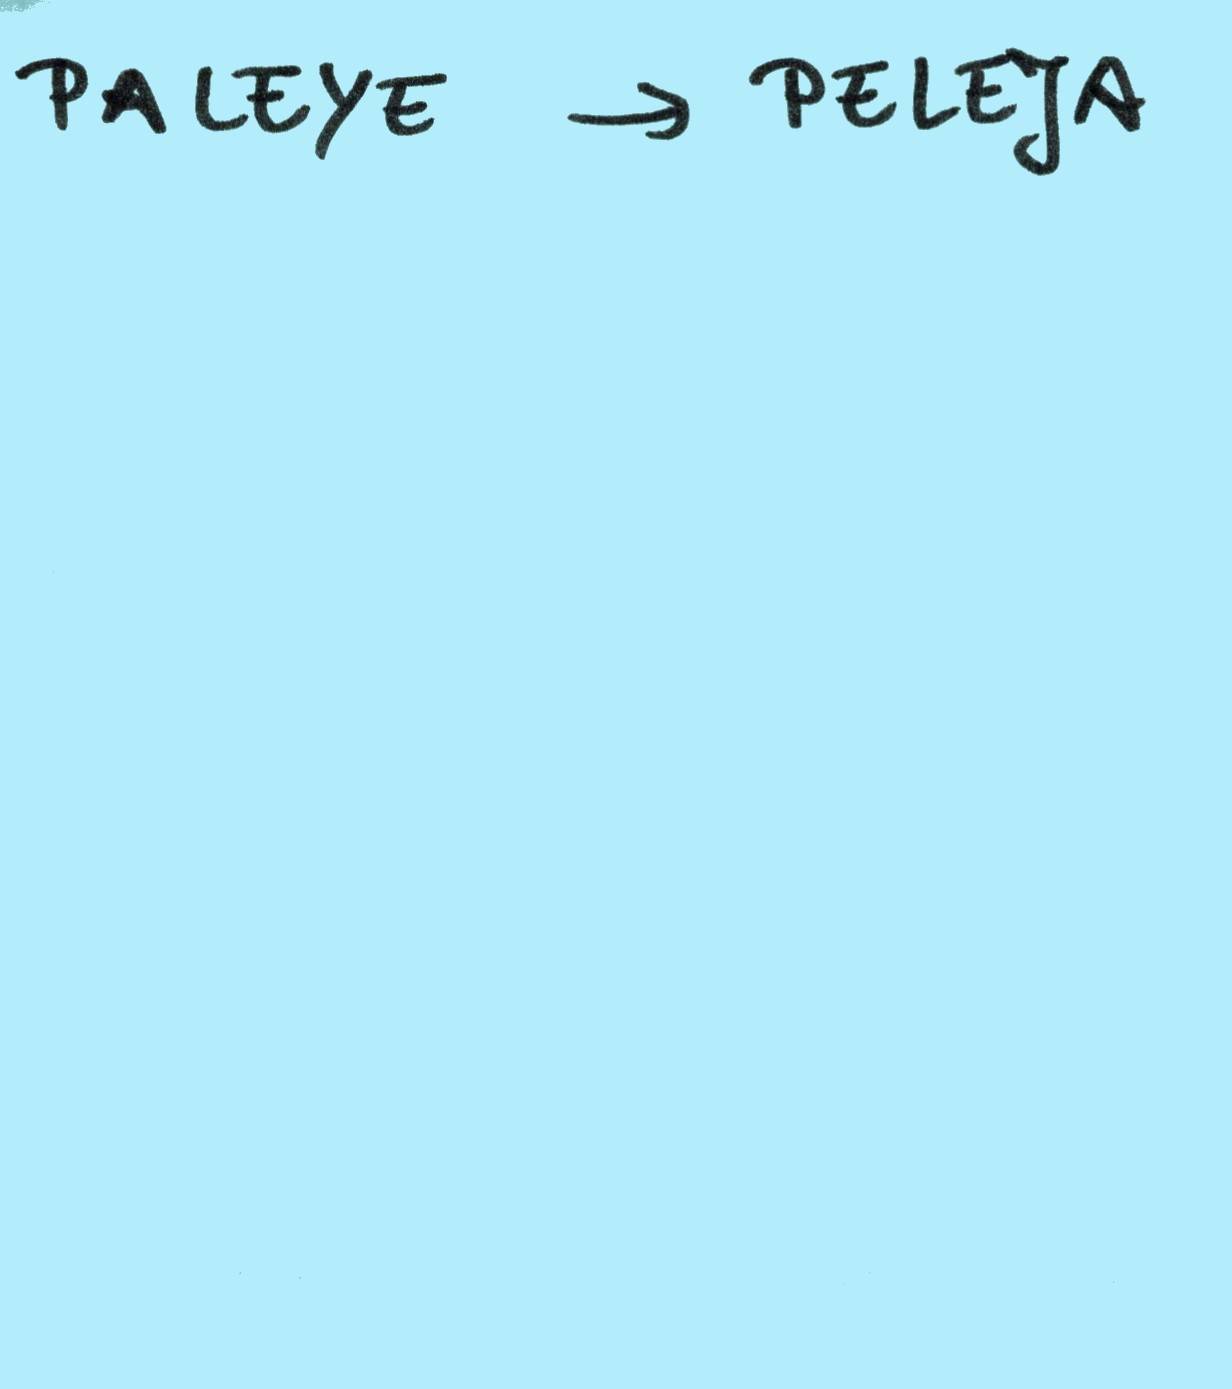 PALEYE → PELEJA